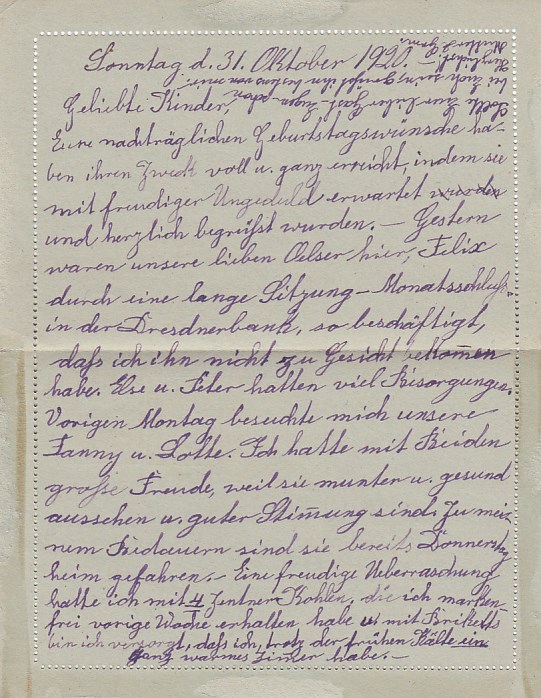 Sonntag d. 31. Oktober 1920. –
Geliebte Kinder,
Eure nachträglichen Geburtstagswünsche ha-
ben ihren Zweck voll u. ganz erreicht, indem sie
mit freudiger Ungeduld erwartet wurden
und herzlich begrüßt wurden. – Gestern
waren unsere lieben Oelser hier, Felix
durch eine lange Sitzung – Monatsschluß
in der Dresdnerbank, so beschäftigt,
daß ich ihn nicht zu Gesicht bekom̅en
habe. Else u. Peter hatten viel Besorgungen.
Vorigen Montag besuchte mich unsere
Fanny u. Lotte. Ich hatte mit Beiden
große Freude, weil sie munter u. gesund
aussehen u. guter Stim̅ung sind. Zu mei-
nem Bedauern sind sie bereits Donnerstag
heim gefahren. – Eine freudige Ueberraschung
hatte ich mit 4 Zentner Kohlen, die ich marken-
frei vorige Woche erhalten habe u. mit Brikets
bin ich versorgt, daß ich, trotz der frühen Kälte ein
ganz warmes Zim̅er habe. –